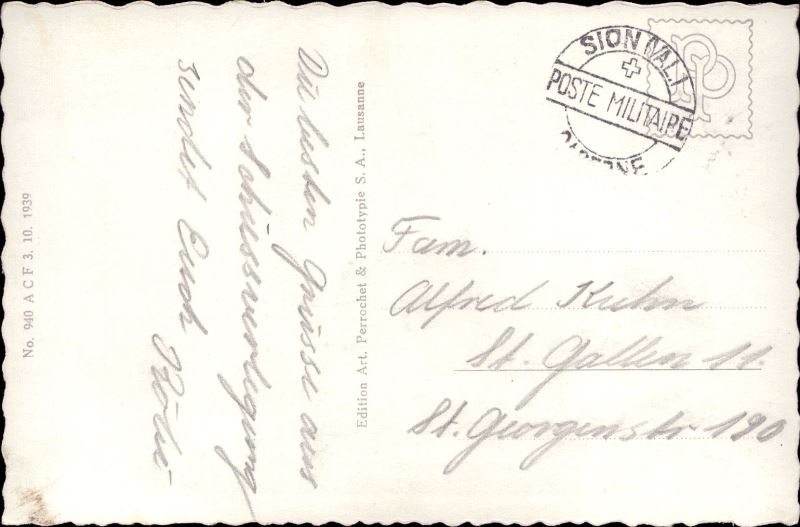 Die besten Grüsse aus
der Schiessverlegung
sendet Euch
No. 940 A C F 3. 10. 1939
Edition Art. Perrochet & Phototypie S. A., Lausanne
SION (VAL.)
POSTE MILITAIRE
CASERNE
Fam.
Alfred Kuhn
St. Gallen 11.
St. Georgenstr 190